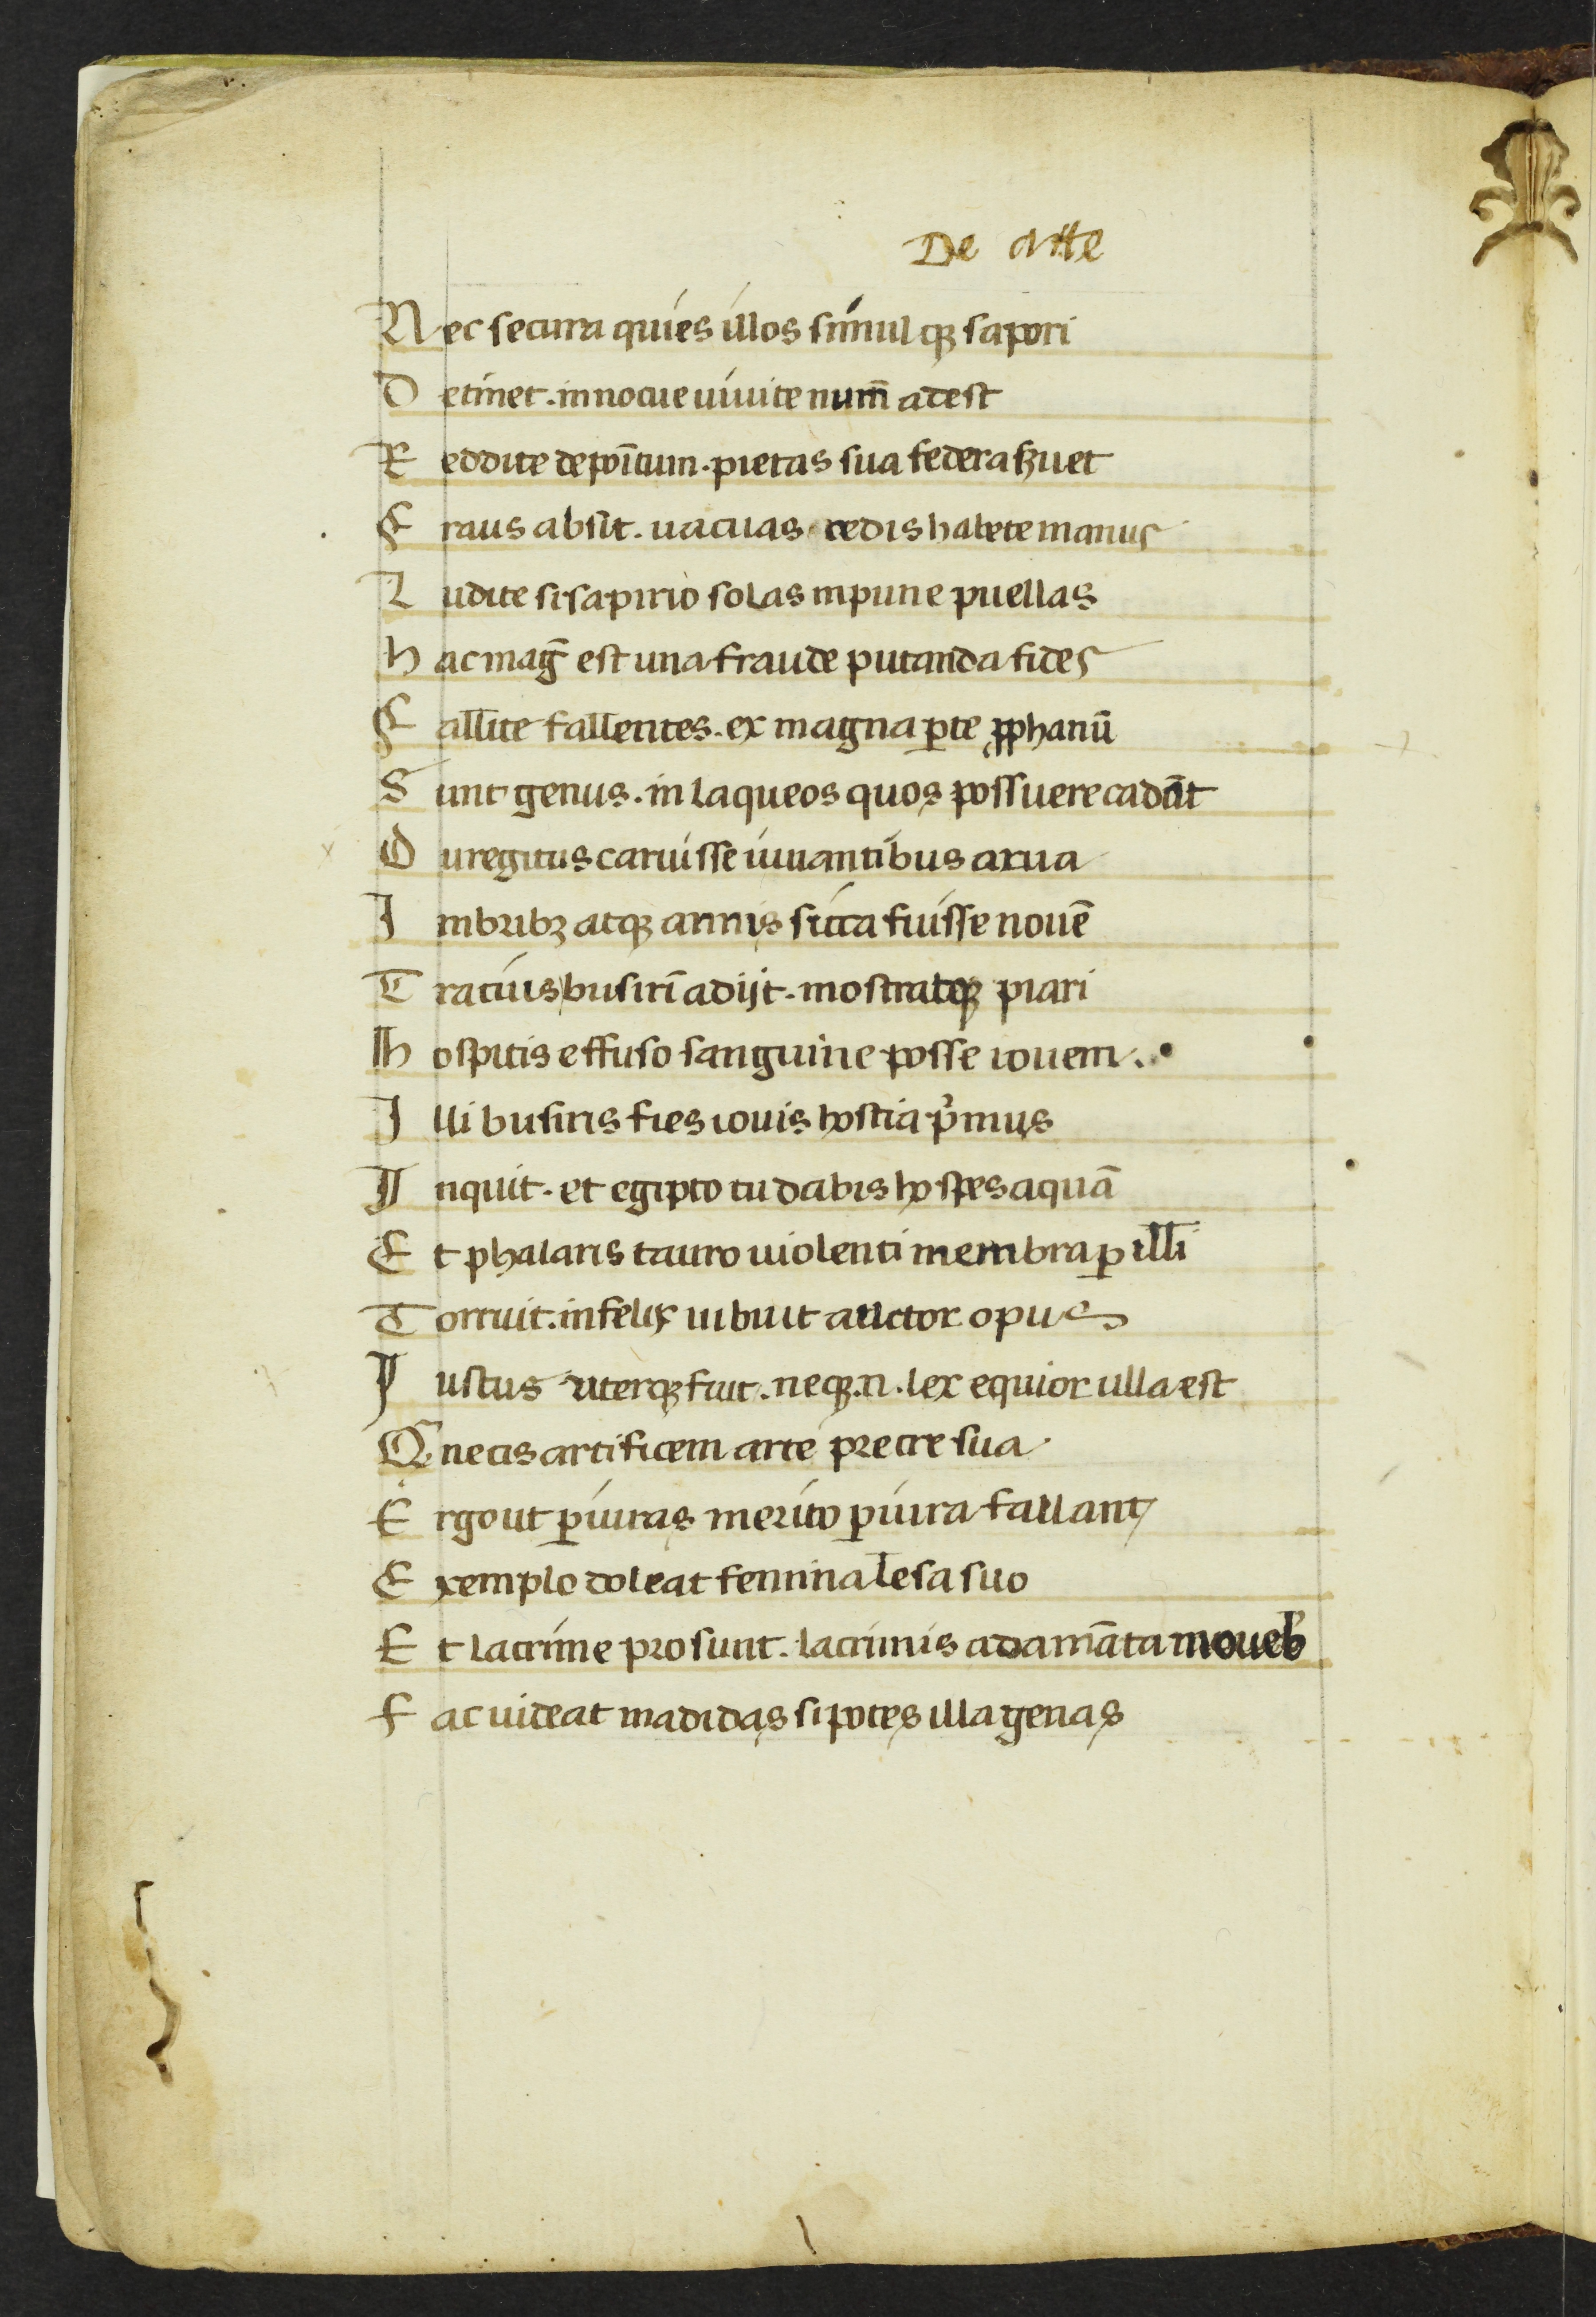 De Arte
Nec secura quies illos simul qꝫ sapori
Detinet. innocue uiuite num̄ adest
Reddite depoītum. pietas sua federa ẜuet
Fraus absit. uacuas cedis habete manus
Ludite si sapitis solas inpune puellas
hac mag̅ est una fraude putanda fides
Fallite fallentes. ex magna ꝑte ꝓphanū
Sunt genus. in laqueos quos possuere cadāt
Dur egitus caruisse iuuantibus arua
Imbribꝫ atqꝫ annis sicca fuisse nouē
Tracius busirī adijt. mostratqꝫ piari
Hospitis effuso sanguine posse iouem.
Illi busiris fies iouis hostia pͥmus
Inquit. et egipto tu dabis hospes aquā
Et phalaris tauro uiolenti membra ꝑilli
Torruit. infelix imbuit auctor opus
Iustus uterqꝫ fuit. neqꝫ .n. lex equior ulla est
Q̄ necis artificem arte perire sua
Ergo ut ꝑiuras merito ꝑiura fallant
Exemplo doleat femina lesa suo
Et lacrime prosunt. lacrimis adamāta moueb̾
Fac uideat madidas si potes illa genas